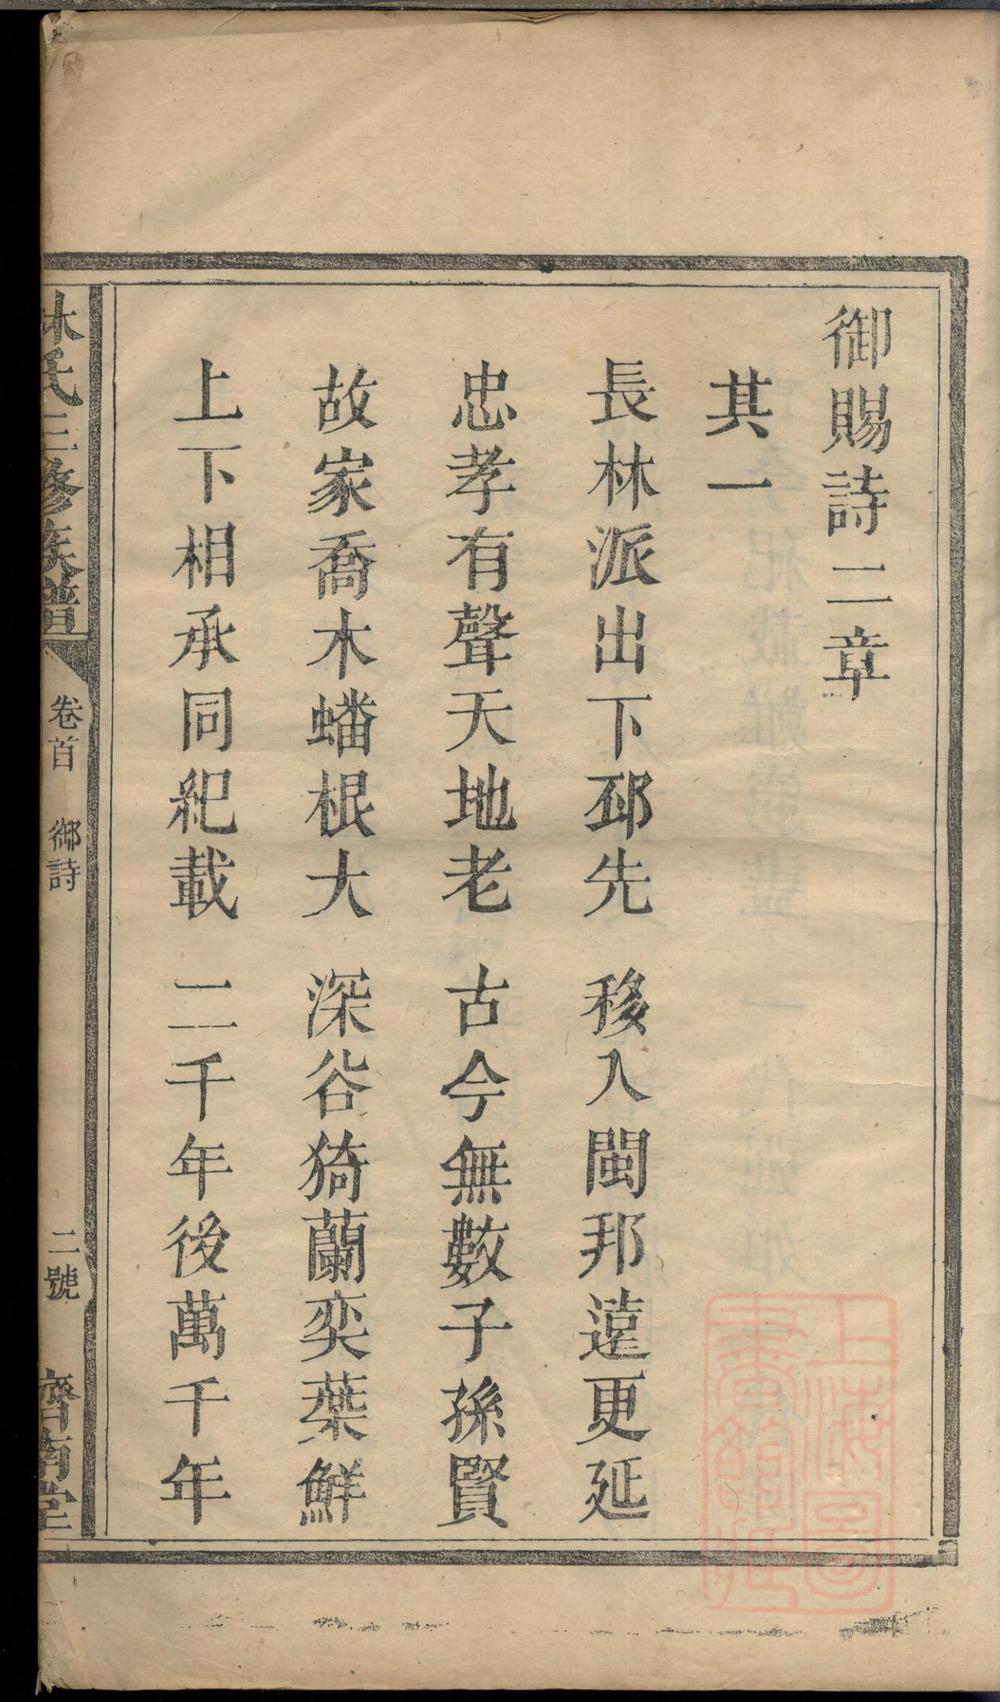 御賜詩二章
其一
長林派出下邳先 移入閩邦遠更延
忠孝有聲天地老 古今無數子孫賢
故家喬木蟠根大 深谷猗蘭奕葉鮮
上下相承同紀載 二千年後萬千年
林氏三修族譜 卷首 御詩 二號 濟南堂
上海圖書館藏